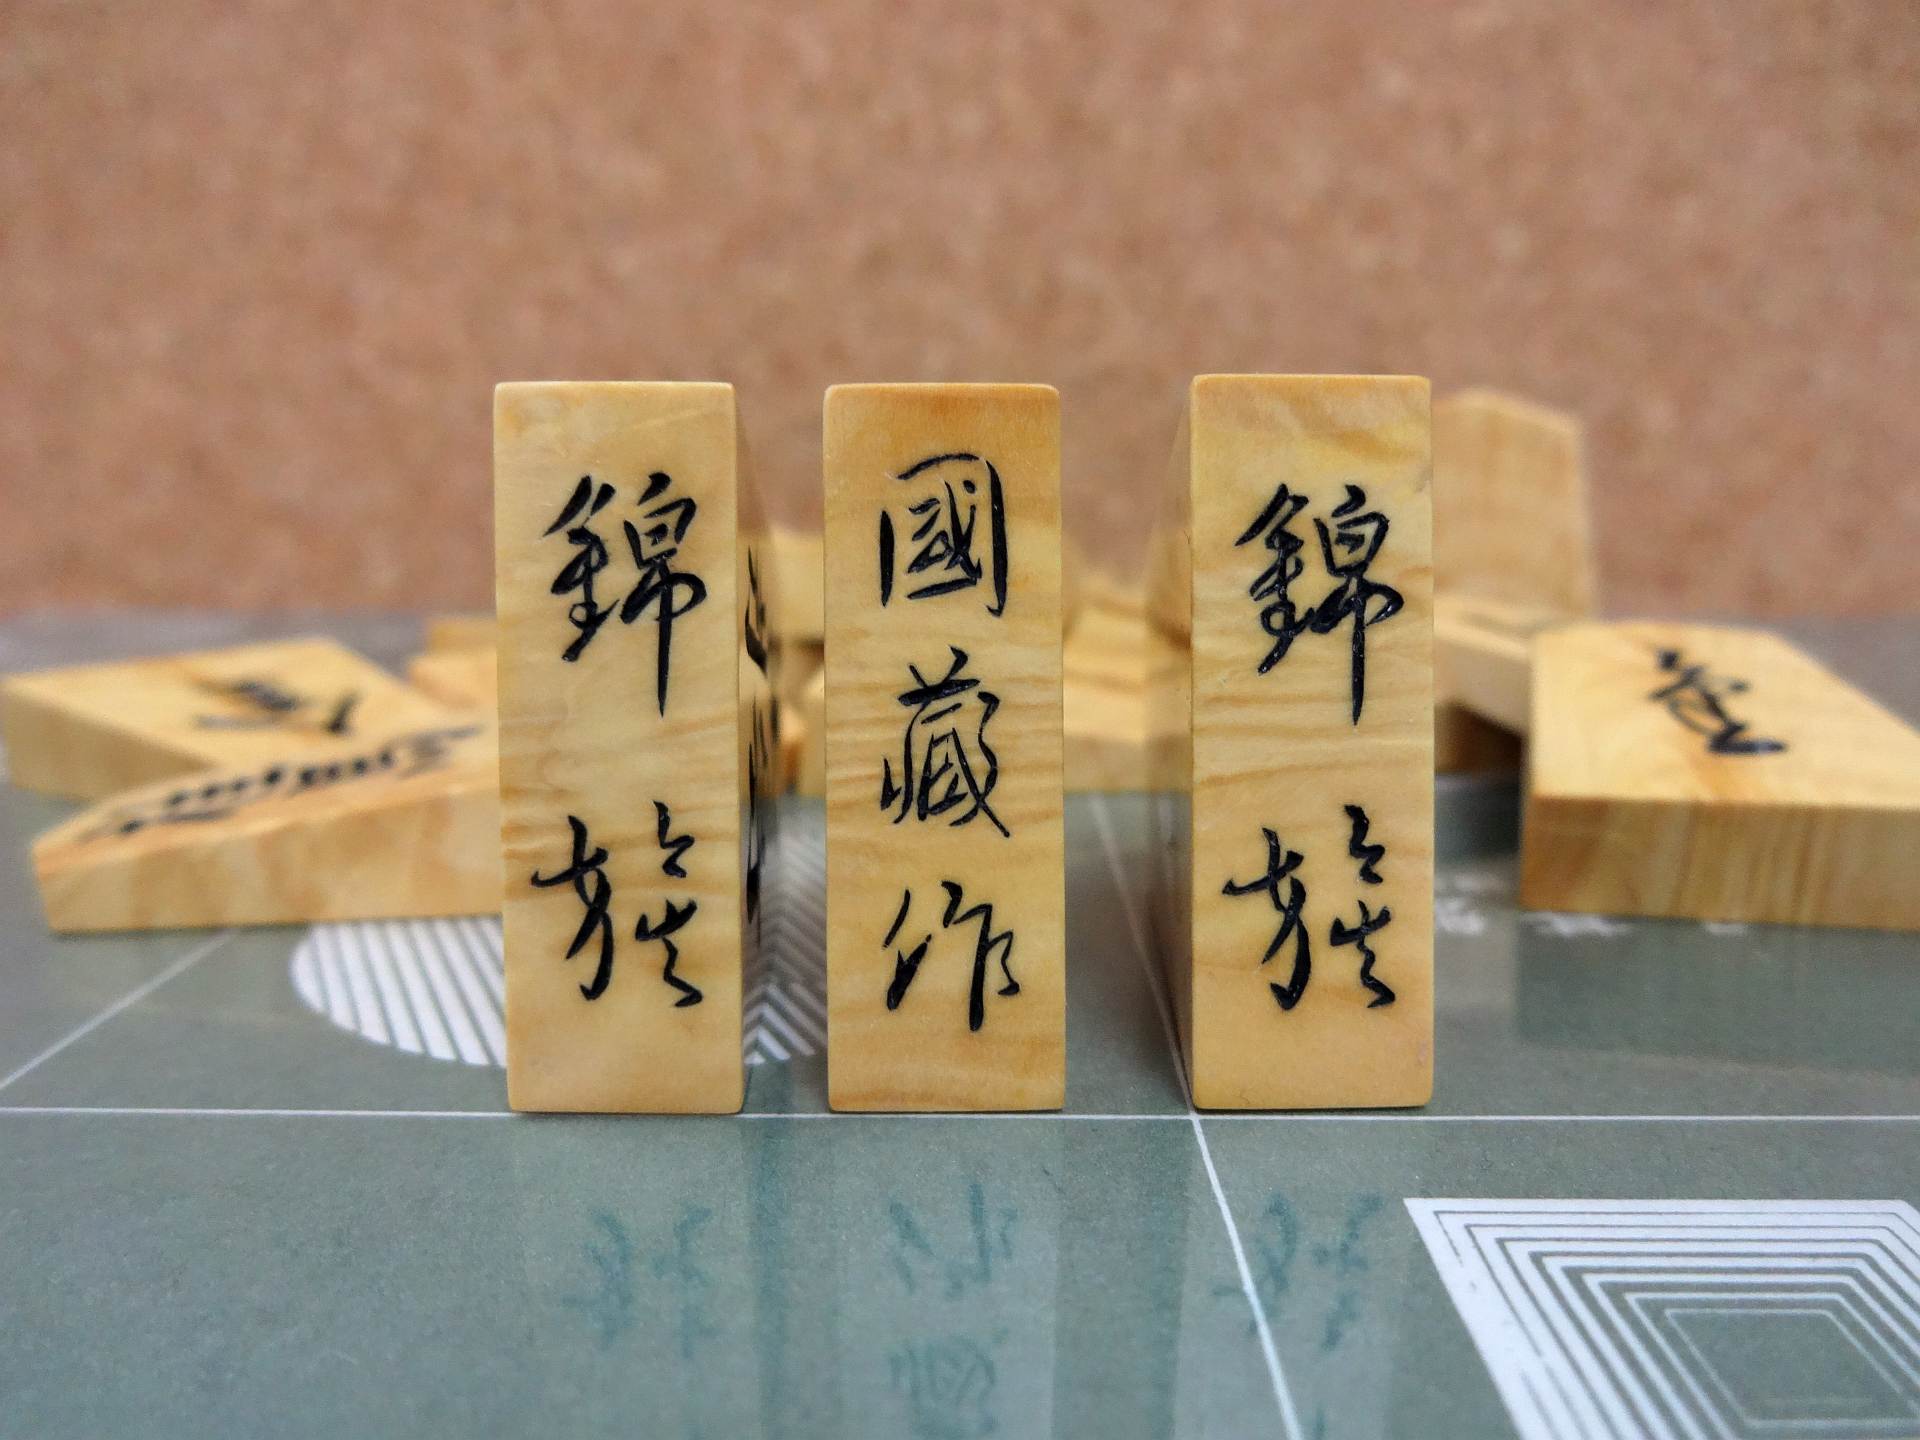 錦旗
國藏作
錦旗